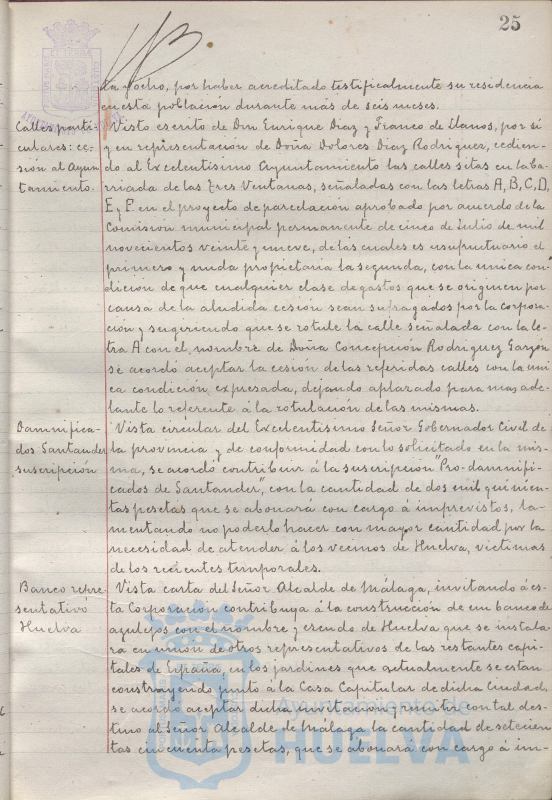 25
la y ocho, por haber acreditado testificalmente su residencia
en esta poblacion durante más de seis meses.
Calles parti-
culares: ce-
sión al Ayun-
tamiento.
Visto escrito de Don Enrique Diaz y Franco de Llanos, por si
y en representación de Doña Dolores Diaz Rodriguez, cedien-
do al Excelentisimo Ayuntamiento las calles sitas en la ba-
rriada de las Tres Ventanas, señaladas con las letras A, B, C, D,
E, y F. en el proyecto de parcelación aprobado por acuerdo de la
Comisión municipal permanente de cinco de Julio de mil
novecientos veinte y nueve, de las cuales es usufructuario el
primero y nuda propietaria la segunda, con la unica con-
dición de que cualquier clase de gastos que se originen por
causa de la aludida cesión sean sufragados por la Corpora-
ción y sugiriendo que se rotule la calle señalada con la le-
tra A con el nombre de Doña Concepción Rodriguez Garzón
se acordó aceptar la cesión de las referidas calles con la uni-
ca condición expresada, dejando aplazado para mas ade-
lante lo referente á la rotulación de las mismas.
Damnifica-
dos Santander
suscripción
Vista circular del Excelentisimo Señor Gobernador Civil de
la provincia y de conformidad con lo solicitado en la mis-
ma, se acordó contribuir á la suscripción "Pro-damnifi-
cados de Santander", con la cantidad de dos mil quinien-
tas pesetas que se abonará con cargo á imprevistos, la-
mentando no poderlo hacer con mayor cantidad por la
necesidad de atender á los vecinos de Huelva, victimas
de los recientes temporales.
Banco repre-
sentativo
Huelva
Vista carta del Señor Alcalde de Málaga, invitando á es-
ta Corporación contribuya á la construcción de un banco de
azulejos con el nombre y escudo de Huelva que se instala-
ra en union de otros representativos de las restantes capi-
tales de España, en los jardines que actualmente se estan
construyendo junto á la Casa Capitular de dicha Ciudad,
se acordó aceptar dicha invitacion y remitir con tal des-
tino al Señor Alcalde de Málaga la cantidad de setecien-
tas cincuenta pesetas, que se abonará con cargo á im-
Ayuntamiento de
HUELVA